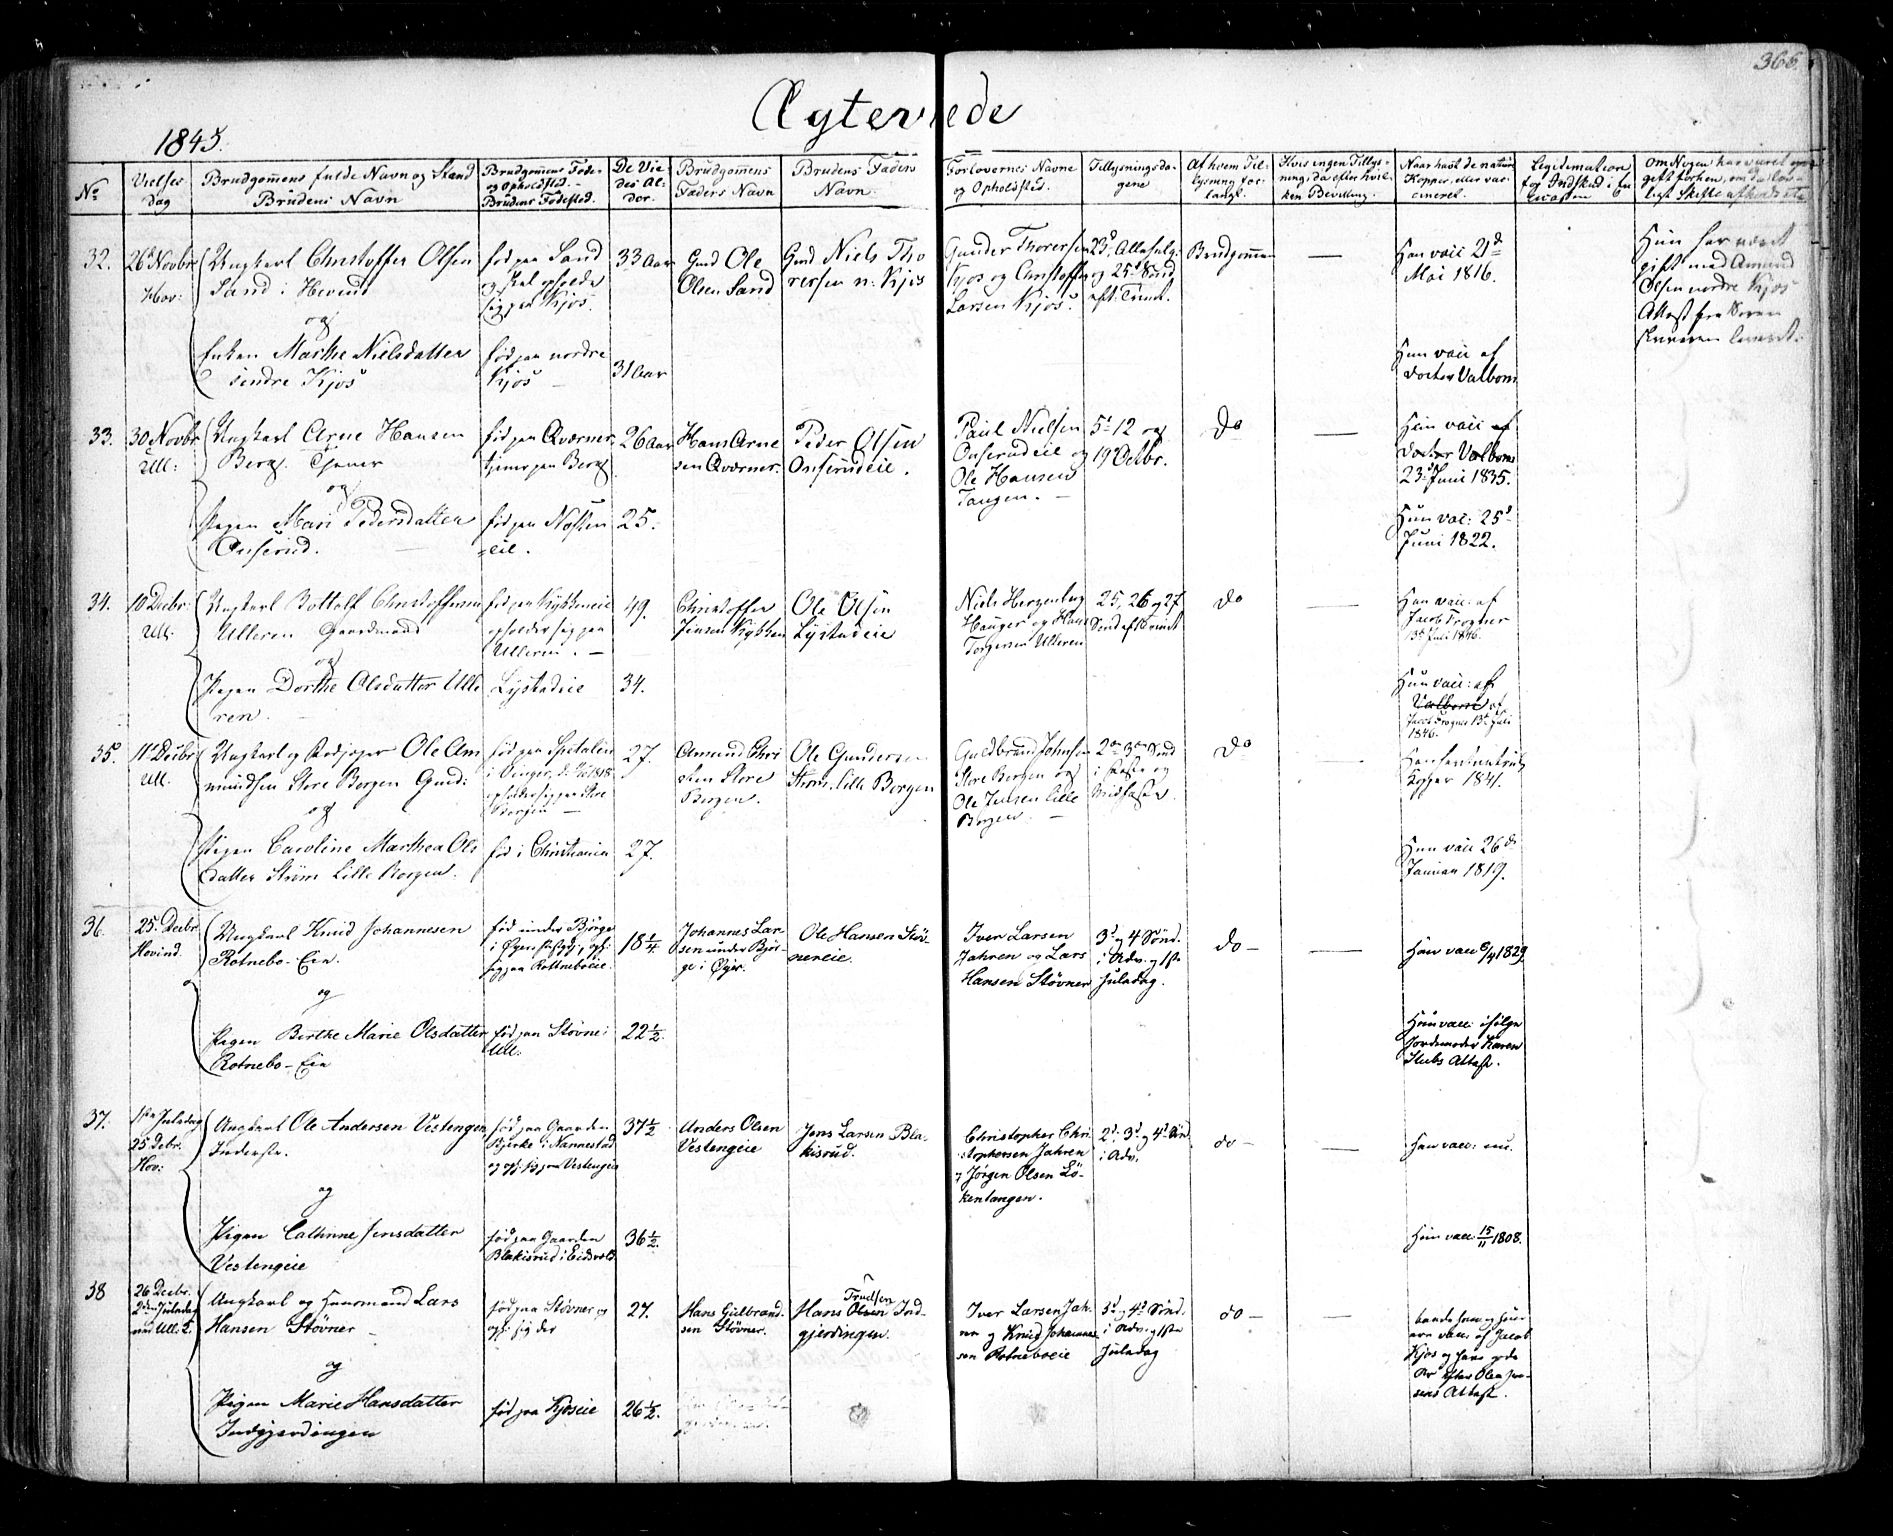 366.
Ægteviede
1845.
No
Vielses
dag
Brudgomens fulde Navn og Stand
Brudens Navn
Brudgomens Føde-
og Opholdsted.
Brudens Fødested.
De Vie-
des Al-
der.
Brudgomens
Faders Navn
Brudens Faders
Navn.
Forlovernes Navne
og Opholdsted.
Tillysningsda-
gene
Af hvem Til-
lysning for-
langt.
Hvis ingen Tillys-
ning, da efter hvil-
ken Bevilling.
Naar havt de naturl.
Kopper, eller vac-
cineret.
Legitimation
for Indskud i En
kecassen
Om Nogen har været
gift forhen, om da lov-
ligt Skifte afholdt etc
32.
26 Novbr
Hov:
Ungkarl Christoffer Olsen
Sand i Hovind
og
Enken Marthe Nielsdatter
søndre Kjos
fød paa Sand
og skal opholde
sig paa Kjos.
fød paa nordre
Kjos
33 Aar
31 Aar
Gmd Ole
Olsen Sand
Gmd Niels Tho
rersen n. Kjos
Gunder Thorersen
Kjos og Christoffer
Larsen Kjos.
23d Allehelg:
og 25d Sønd
eft. Trinit.
Brudgommen
Han vacc 21d
Mai 1816.
Hun vacc af
Docter Valborn
Hun har været
gift med Amund
Olsen nordre Kjos
Attest fra Soren
skriveren leveret.
33.
30 Novbr
Ull:
Ungkarl Arne Hansen
Berg. Tjener
og
Pigen Mari Pedersdatter
Onserud.
fød paa Qværner,
tjener paa Berg
fød paa Næsten
eie.
26 Aar
25.
Hans Arne
sen Qværner.
Peder Olsen
Onserudeie.
Paul Nielsen
Onserudeie og
Ole Hansen
Tangen.
5t 12 og
19d Octbr.
Do
Han vacc af
Docter Valborn
23d Juni 1835.
Hun vac: 25d
Juni 1822.
34.
10 Decbr.
Ull.
Ungkarl Bottolf Christoffersen
Ulleren Gaardmand
og
Pigen Dorthe Olsdatter Ulle
ren.
fød paa Kykkeneie
opholder sig paa
Ulleren.
Lystadeie
49.
34.
Christoffer
Jensen Kykken
Ole Olsen
Lystadeie
Niels Herzenberg
Hauger og Hans
Torgersen Ulleren
25, 26 og 27
Sønd eft Trinit
Do
Han vacc: af
Jacob Frogner
13d Juli 1846.
Hun vacc: af
Valborn af
Jacob Frogner 13d Juli
1846.
35.
11 Decbr
Ull.
Ungkarl og Ole Am
mundsen Store Borgen Gmd:
og
Pigen Caroline Marthea Ols
datter Strøm Lille Borgen.
fød paa Spetalen
i Vinger,
opholder sig paa Store
Borgen
fød i Christiania
27.
27.
Amund Chri
sten Store
Borgen.
Ole Gundersen
Strøm, Lille Borgen
Guldbrand Johnsen
Store Borgen og
Ole Jensen Lille
Borgen.
2den 3den Sønd
i Faste og
Midfaste.
Do
Han havt naturlige
Kopper 1841.
Hun vacc 26de
Januar 1819.
36.
25. Decbr
Hovind.
Ungkarl Knud Johannesen
Rotnebo-Eie.
og
Pigen Berthe Marie Olsdatter
Rotnebo-Eie
fød under Bjørge
i Øyer Præstgj, oph:
sig paa Rottneboeie.
fød paa Støvne i
Ull:
18 1/4
22 1/2.
Johannes Lar-
sen under Bjør-
ge i Øyer.
Ole Hansen Støv-
nereie.
Iver Larsen
Jahren og Lars
Hansen Støvner
3d og 4 Sønd.
i Adv. og 1ste
Juledag.
do
Han vacc 6/4 1829.
Hun vacc: ifølge
Jordemoder Karen
Stubs Attest.
37.
1ste Juledag
25 Debr.
Hov:
Ungkarl Ole Andersen Vestengen,
Inderste.
og
Pigen Cathrine Jensdatter
Vestengeie
fød paa Gaarden
Bjerke i Nannestad
og oph. sig paa Vestengeie
fød paa Gaarden
Blakisrud i Eidsvold.
37 1/2
36 1/2.
Anders Olsen
Vestengeie
Jens Larsen Bla-
kisrud.
Christopher Chri-
stophersen Jahren
og Jørgen Olsen Lø-
kentangen.
2d, 3d og 4d Sønd
i Adv.
do
Han vacc: nu.
Hun vacc: 15/11 1808.
38
26 Decbr.
2den Juledag
Ull. K.
Ungkarl og Huusmand Lars
Hansen Støvner
og
Pigen Marie Hansdatter
Indgjerdingen
fød paa Støvner og
oph. sig der
fød paa Kjoseie
27.
26 1/2.
Hans Gulbrand-
sen Støvner.
Trudsen
Hans Olsen Ind-
gjerdingen.
Iver Larsen Jah-
ren og Knud Johannes-
sen Rotneboeie
3d og 4d Sønd.
i Adv. og 1ste
Juledag
do
baade han og hun
ere vacc: af Jacob
Kjos og have gode
Ar efter Ole Jen-
sens Attest.